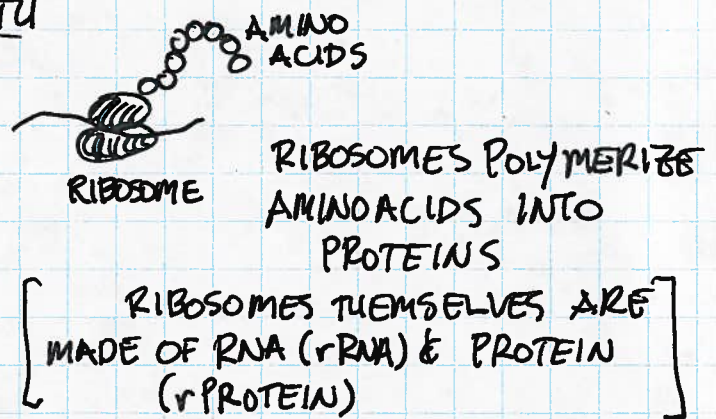 AMINO
ACIDS
RIBOSOME
RIBOSOMES POLYMERIZE
AMINOACIDS INTO
PROTEINS
[ RIBOSOMES THEMSELVES ARE ]
MADE OF RNA (rRNA) & PROTEIN
(rPROTEIN)